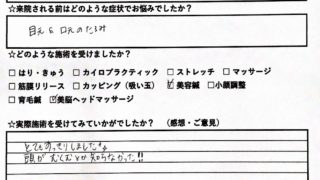 ☆来院される前はどのような症状でお悩みでしたか？
目元と口元のたるみ
☆どのような施術を受けましたか？
□はり・きゅう □カイロプラクティック □ストレッチ □マッサージ
□筋膜リリース □カッピング（吸い玉） ☑美容鍼 □小顔調整
□育毛鍼 ☑美脳ヘッドマッサージ
☆実際施術を受けてみていかがでしたか？（感想・ご意見）
とてもすっきりしました
頭がむくむとか知らなかった!!